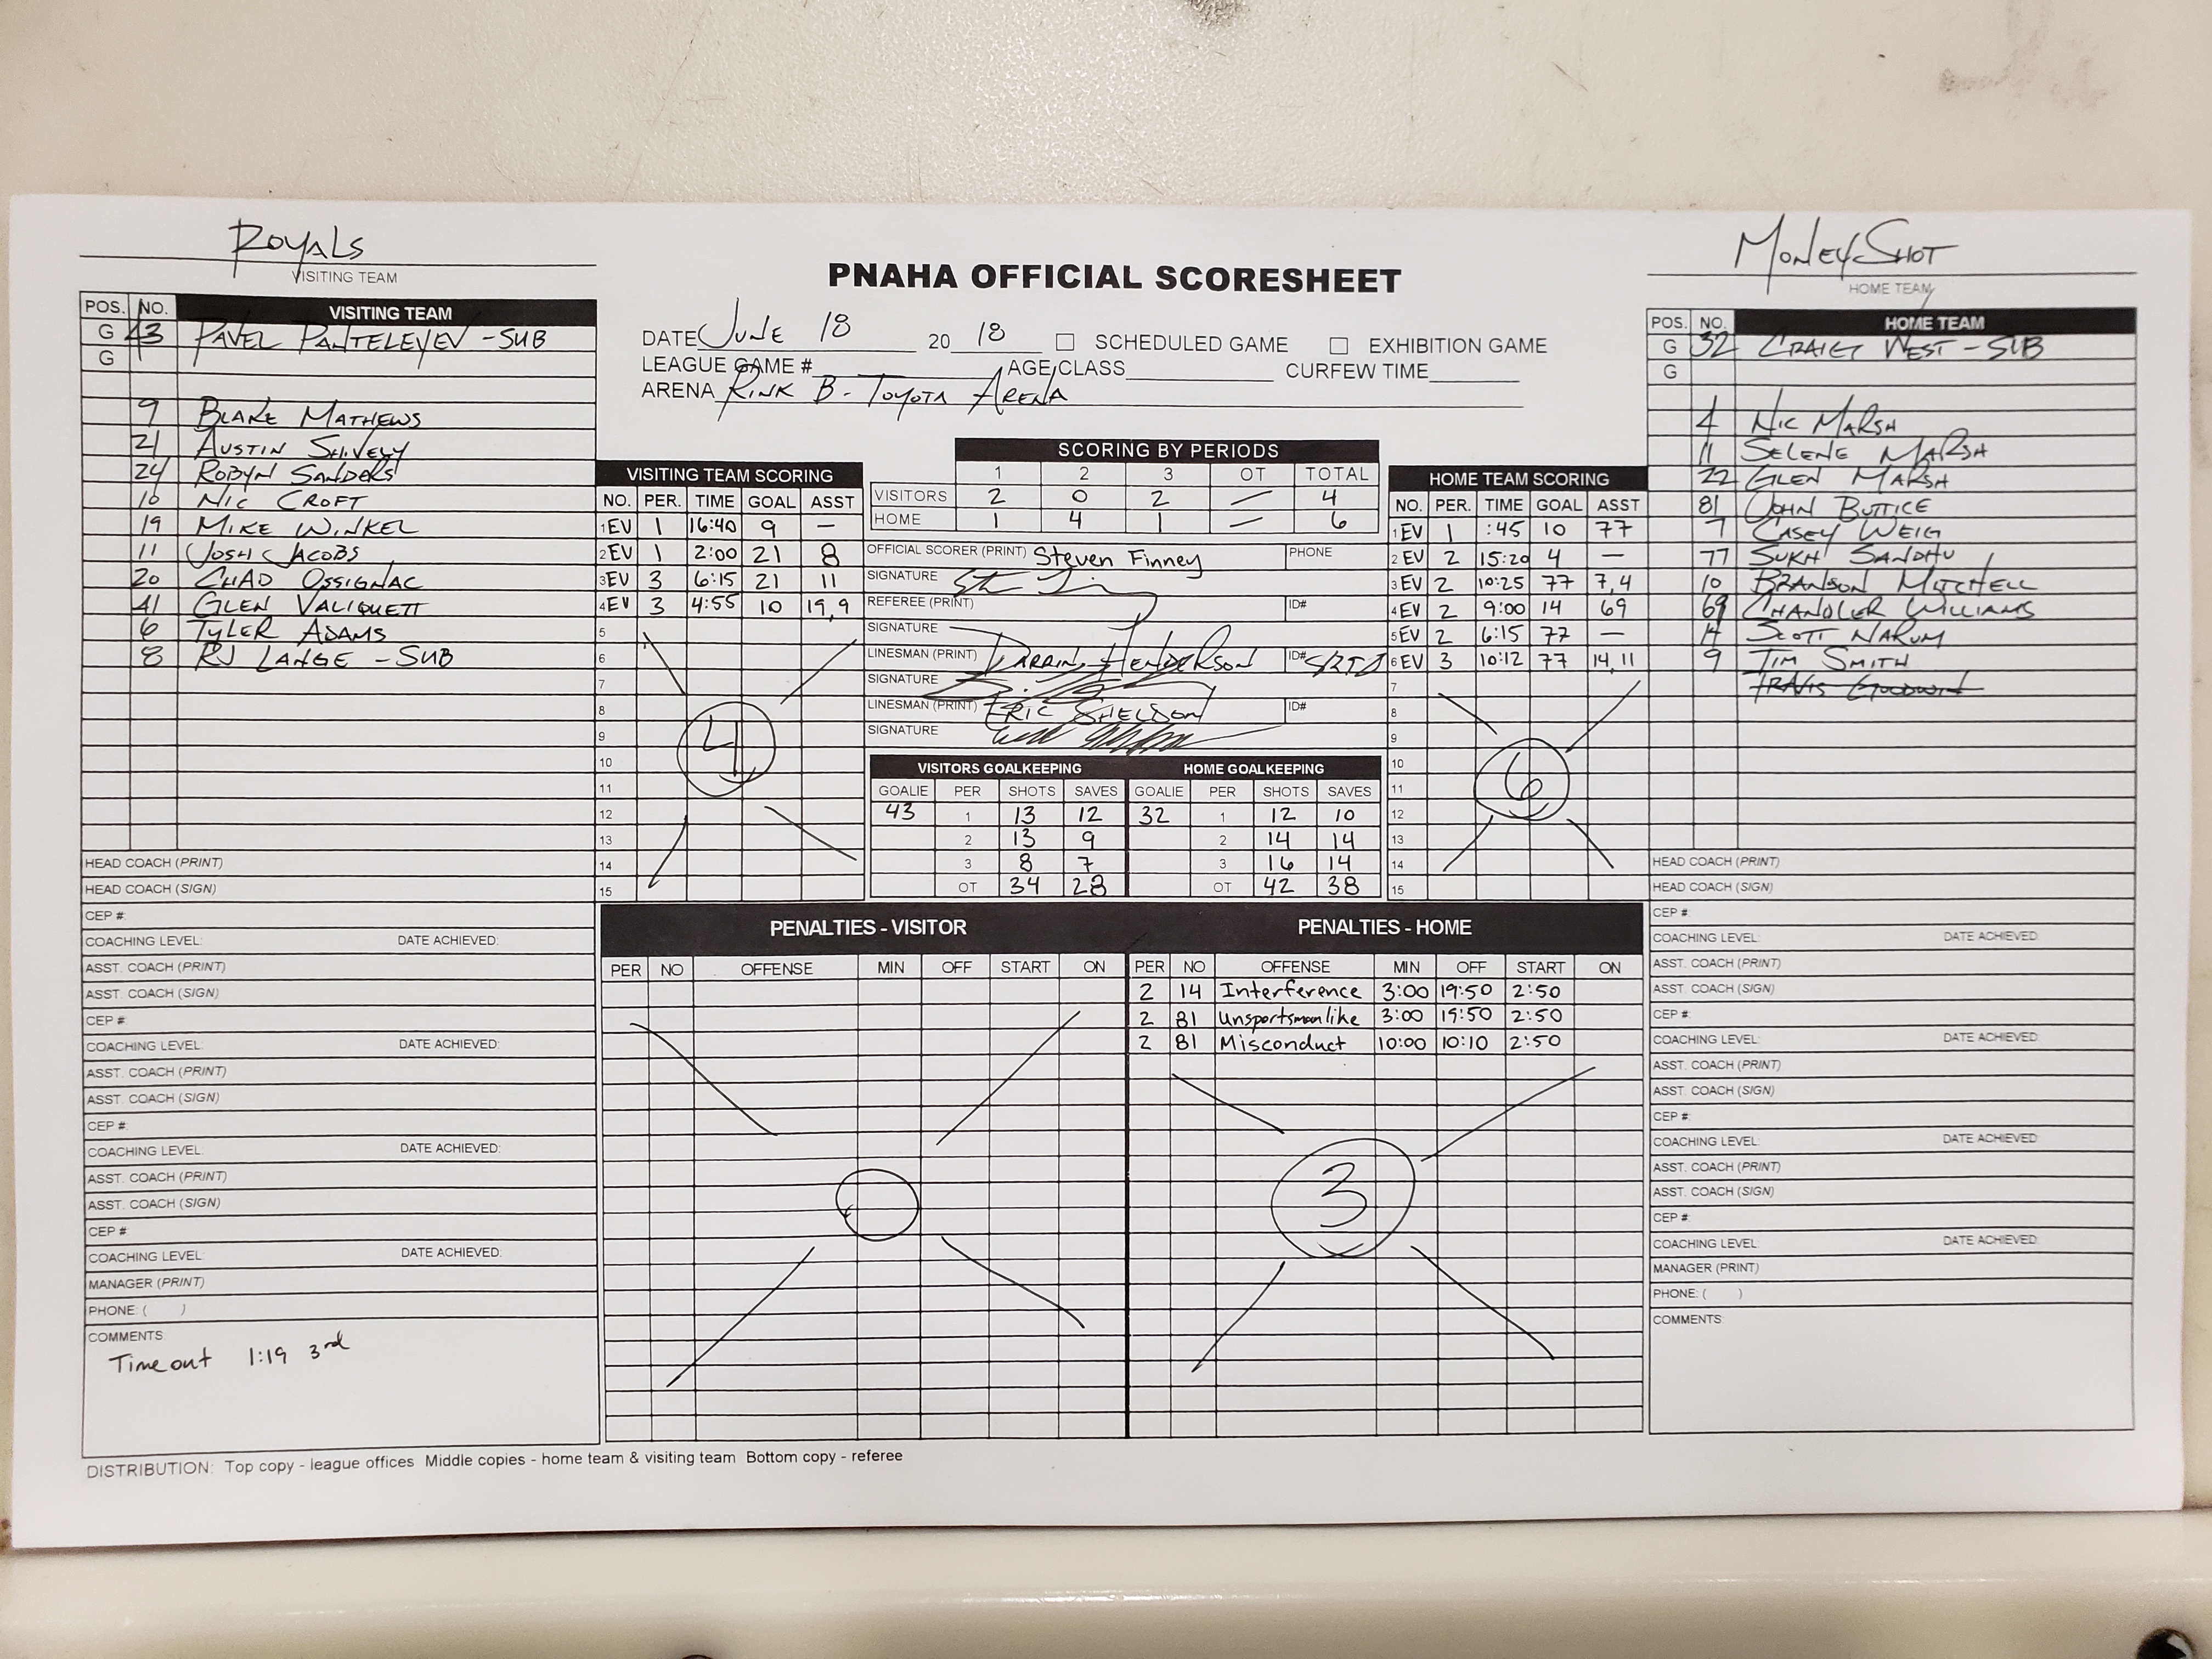 Royals
VISITING TEAM
MoneyShot
HOME TEAM
PNAHA OFFICIAL SCORESHEET
DATE June 18 20 18 SCHEDULED GAME EXHIBITION GAME
LEAGUE GAME # AGE/CLASS CURFEW TIME
ARENA Rink B - Toyota Arena
POS. NO. VISITING TEAM
G 43 Pavel Panteleyev - SUB
G
9 Blake Mathews
21 Austin Shively
24 Robyn Sanders
10 Nic Croft
19 Mike Winkel
11 Josh Jacobs
20 Chad Ossignac
41 Glen Valiquett
6 Tyler Adams
8 RJ Lange - SUB
HEAD COACH (PRINT)
HEAD COACH (SIGN)
CEP #:
COACHING LEVEL: DATE ACHIEVED:
ASST. COACH (PRINT)
ASST. COACH (SIGN)
CEP #:
COACHING LEVEL: DATE ACHIEVED:
ASST. COACH (PRINT)
ASST. COACH (SIGN)
CEP #:
COACHING LEVEL: DATE ACHIEVED:
ASST. COACH (PRINT)
ASST. COACH (SIGN)
CEP #:
COACHING LEVEL: DATE ACHIEVED:
MANAGER (PRINT)
PHONE: ( )
COMMENTS
Time out 1:19 3rd
VISITING TEAM SCORING
NO. PER. TIME GOAL ASST
1 EV 1 16:40 9 —
2 EV 1 2:00 21 8
3 EV 3 6:15 21 11
4 EV 3 4:55 10 19,9
5
6
7
8
9
10
11
12
13
14
15
4
SCORING BY PERIODS
1 2 3 OT TOTAL
VISITORS 2 0 2 — 4
HOME 1 4 1 — 6
OFFICIAL SCORER (PRINT) Steven Finney PHONE
SIGNATURE
REFEREE (PRINT) ID#
SIGNATURE
LINESMAN (PRINT) Darrin Henderson ID#
SIGNATURE
LINESMAN (PRINT) Eric Sheldon ID#
SIGNATURE
VISITORS GOALKEEPING HOME GOALKEEPING
GOALIE PER SHOTS SAVES GOALIE PER SHOTS SAVES
43 1 13 12 32 1 12 10
2 13 9 2 14 14
3 8 7 3 16 14
OT 34 28 OT 42 38
HOME TEAM SCORING
NO. PER. TIME GOAL ASST
1 EV 1 :45 10 77
2 EV 2 15:20 4 —
3 EV 2 10:25 77 7,4
4 EV 2 9:00 14 69
5 EV 2 6:15 77 —
6 EV 3 10:12 77 14,11
7
8
9
10
11
12
13
14
15
6
POS. NO. HOME TEAM
G 32 Craig West - SUB
G
4 Nic Marsh
11 Selene Marsh
22 Glen Marsh
81 John Buttice
7 Casey Weig
77 Sukh Sandhu
10 Branson Mitchell
69 Chandler Williams
14 Scott Narum
9 Tim Smith
Travis Goodwin
HEAD COACH (PRINT)
HEAD COACH (SIGN)
CEP #:
COACHING LEVEL: DATE ACHIEVED:
ASST. COACH (PRINT)
ASST. COACH (SIGN)
CEP #:
COACHING LEVEL: DATE ACHIEVED:
ASST. COACH (PRINT)
ASST. COACH (SIGN)
CEP #:
COACHING LEVEL: DATE ACHIEVED:
ASST. COACH (PRINT)
ASST. COACH (SIGN)
CEP #:
COACHING LEVEL: DATE ACHIEVED:
MANAGER (PRINT)
PHONE: ( )
COMMENTS:
PENALTIES - VISITOR PENALTIES - HOME
PER NO OFFENSE MIN OFF START ON PER NO OFFENSE MIN OFF START ON
2 14 Interference 3:00 19:50 2:50
2 81 Unsportsmanlike 3:00 19:50 2:50
2 81 Misconduct 10:00 10:10 2:50
0
3
DISTRIBUTION: Top copy - league offices Middle copies - home team & visiting team Bottom copy - referee